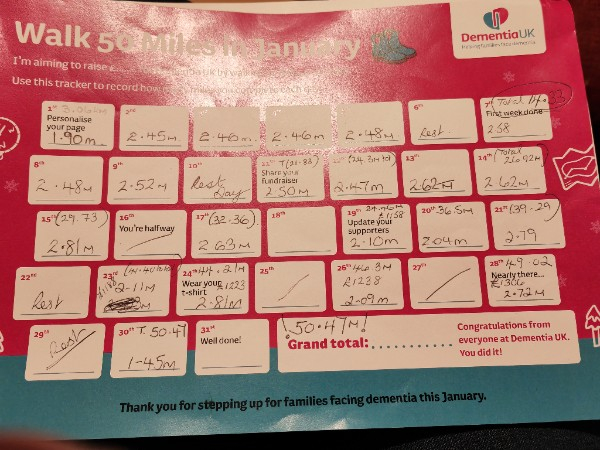 Walk 50 Miles in January
DementiaUK
Helping families face dementia
I'm aiming to raise
UK by
Use this tracker to record how
1st 3.06km
Personalise
your page
1.90m
2nd
2.45M
3rd
2.46m
4th
2.46m
5th
2.48M
6th
Rest
7th (Total 14.
First week done
2.58
8th
2.48M
9th
2.52M
10th
Rest
Day
11th T(21.83)
Share your
fundraiser
2.50M
12th (24.3M
2.47m
13th
2.62M
14th (Total
26.92M)
2.62M
15th (29.73)
2.81M
16th
You're halfway
17th (32.36)
2.63M
18th
19th 34.46M
£1158
Update your
supporters
2.10m
20th 36.5M
2.04m
21st (39.29)
2.79
22nd
Rest
23rd (41.40
2.11M
24th 44.21M
Wear your £1223
t-shirt
2.81M
25th
26th 46.3M
£1238
2.09m
27th
28th 49.02
Nearly there...
£1306
2.72M
29th
Rest
30th T. 50.47
1.45m
31st
Well done!
50.47M!
Grand total: ..........
Congratulations from
everyone at Dementia UK.
You did it!
Thank you for stepping up for families facing dementia this January.